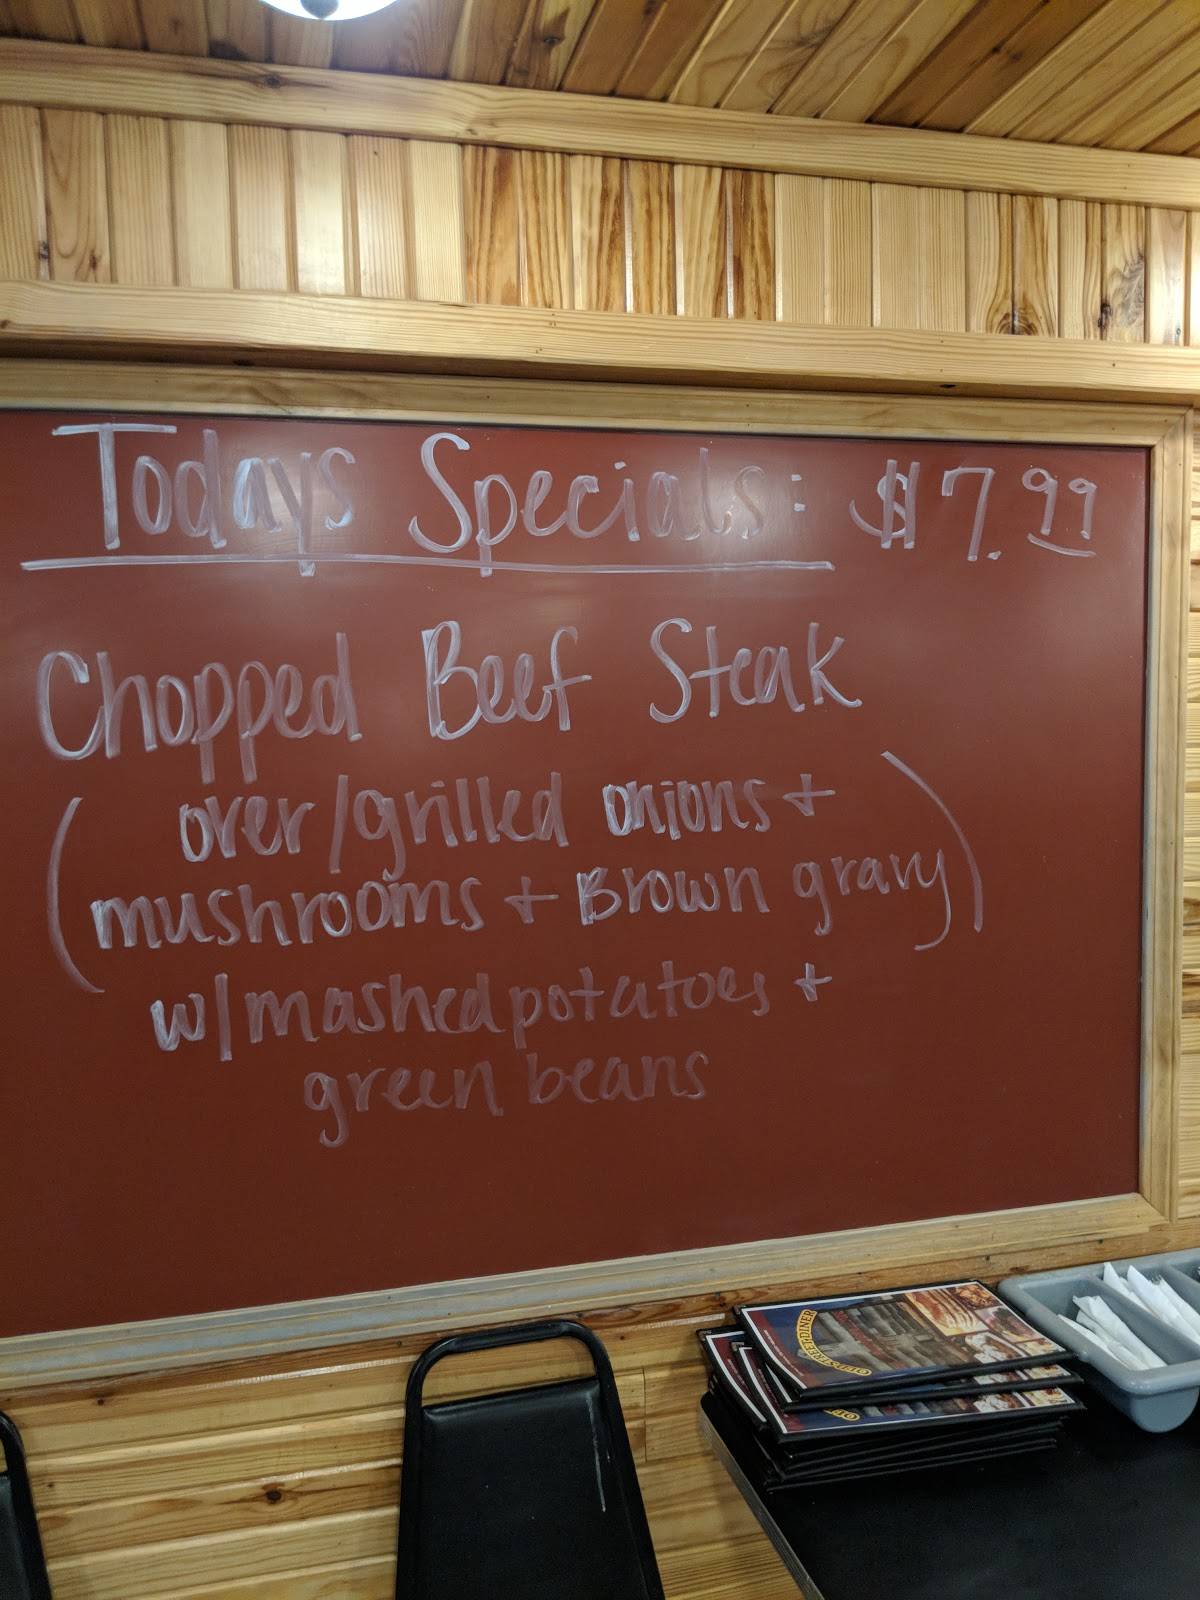 Todays Specials: $7.99
Chopped Beef Steak
(over/grilled onions +
mushrooms + Brown gravy)
w/mashed potatoes +
green beans
DINER